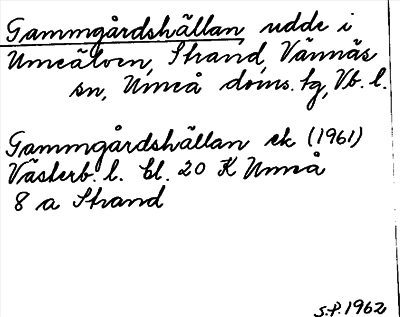 Gammgårdshällan, udde i
Umeälven, Strand, Vännäs
sn, Umeå doms. tg, Vb. l.
Gammgårdshällan ek (1961)
Västerb. l. bl. 20 K Umeå
8 a Strand
S.P. 1962